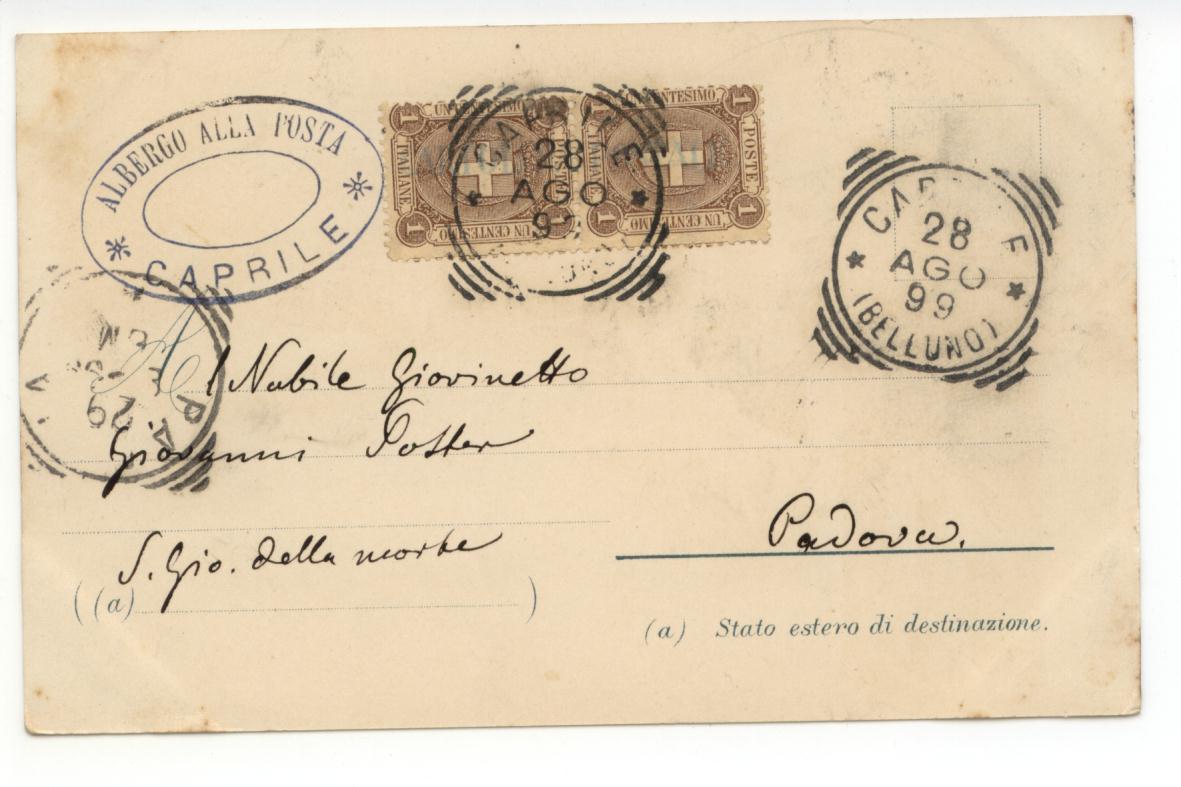 ALBERGO ALLA POSTA
CAPRILE
1 UN CENTESIMO 1
POSTE ITALIANE
1 UN CENTESIMO 1
1 UN CENTESIMO 1
POSTE ITALIANE
1 UN CENTESIMO 1
CAPRILE
28
AGO
9
CAP E
28
AGO
99
(BELLUNO)
PA
29
A
l Nobile Giovinetto
Giovanni
S. Gio. della morte
Padova.
((a) )
(a) Stato estero di destinazione.